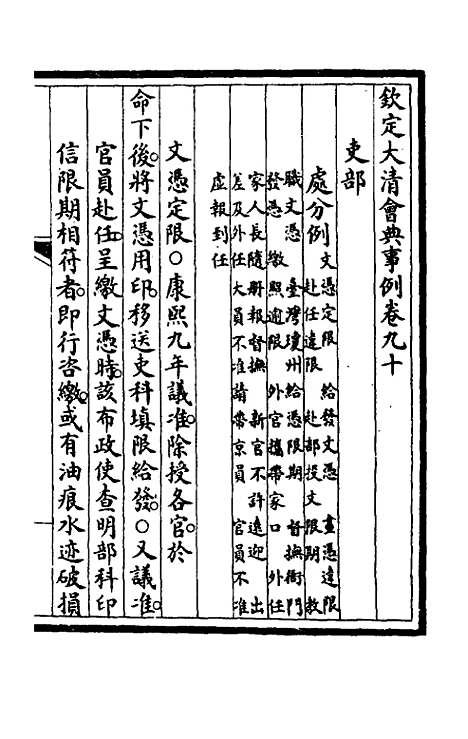 欽定大清會典事例卷九十
吏部
處分例 文憑定限 給發文憑 畫憑違限
赴任違限 赴部投文限期 教
職文憑 臺灣瓊州給憑限期 督撫衙門
發憑 繳照逾限 外官攜帶家口 外任
家人長隨册報督撫 新官不許遠迎 出
差及外任大員不准請帶京員 官員不准
虛報到任
文憑定限○康熙九年議准。除授各官。於
命下後。將文憑用印。移送吏科填限給發。○又議准。
官員赴任。呈繳文憑時。該布政使查明部科印
信限期相符者。即行咨繳。或有油痕水迹破損